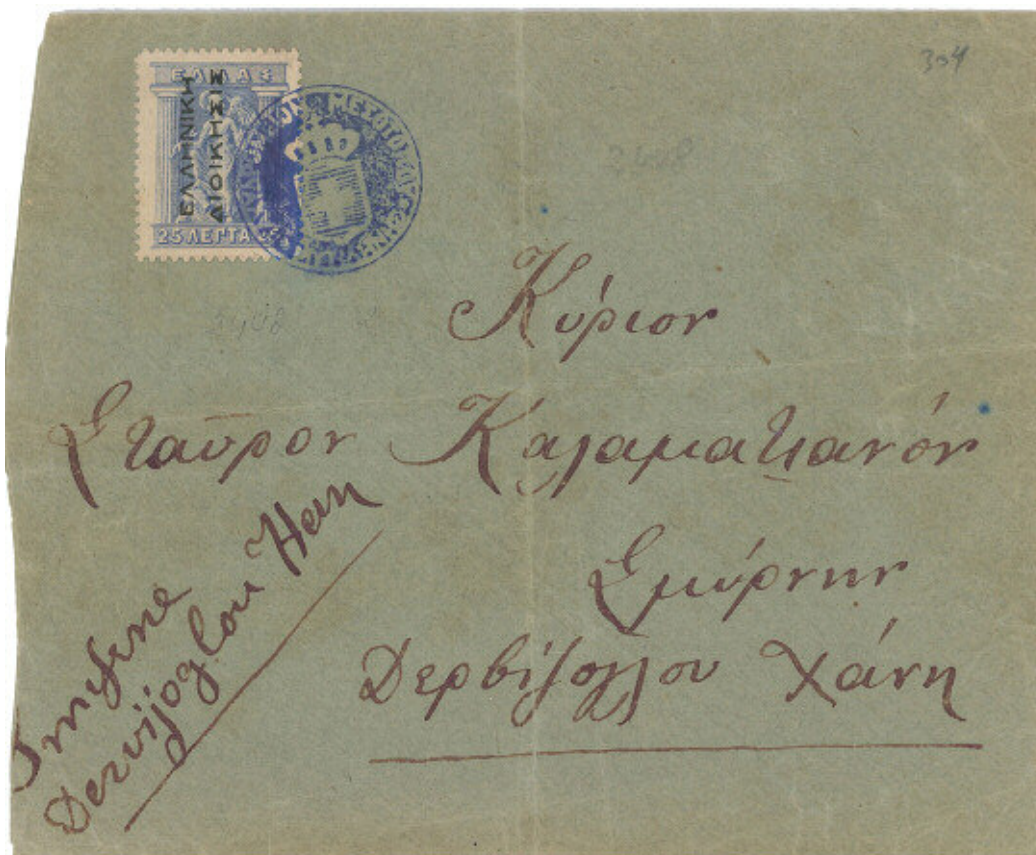 304
ΕΛΛΑΣ
ΕΛΛΗΝΙΚΗ
ΔΙΟΙΚΗΣΙΣ
25 ΛΕΠΤΑ 25
2408
Κύριον
Σταῦρον Καλαματιανόν
Σμύρνην
Δερβίζογλου Χάνη
Smyrne
Dervijoglou Han